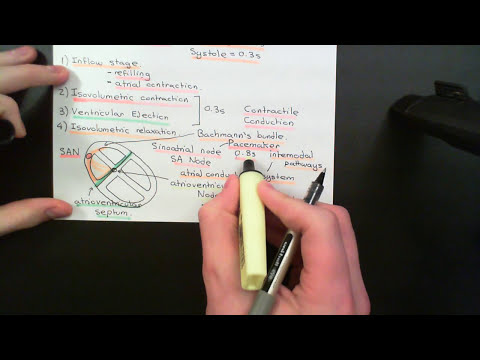 Systole = 0.3s
1) Inflow stage.
- refilling
- atrial contraction.
2) Isovolumetric contraction
3) Ventricular Ejection
0.3s
Contractile
Conduction
4) Isovolumetric relaxation.
Bachmann's bundle.
Pacemaker
SAN
Sinoatrial node
0.8s
internodal
SA Node
pathways
atrial
system
Node
atrioventricular
septum.